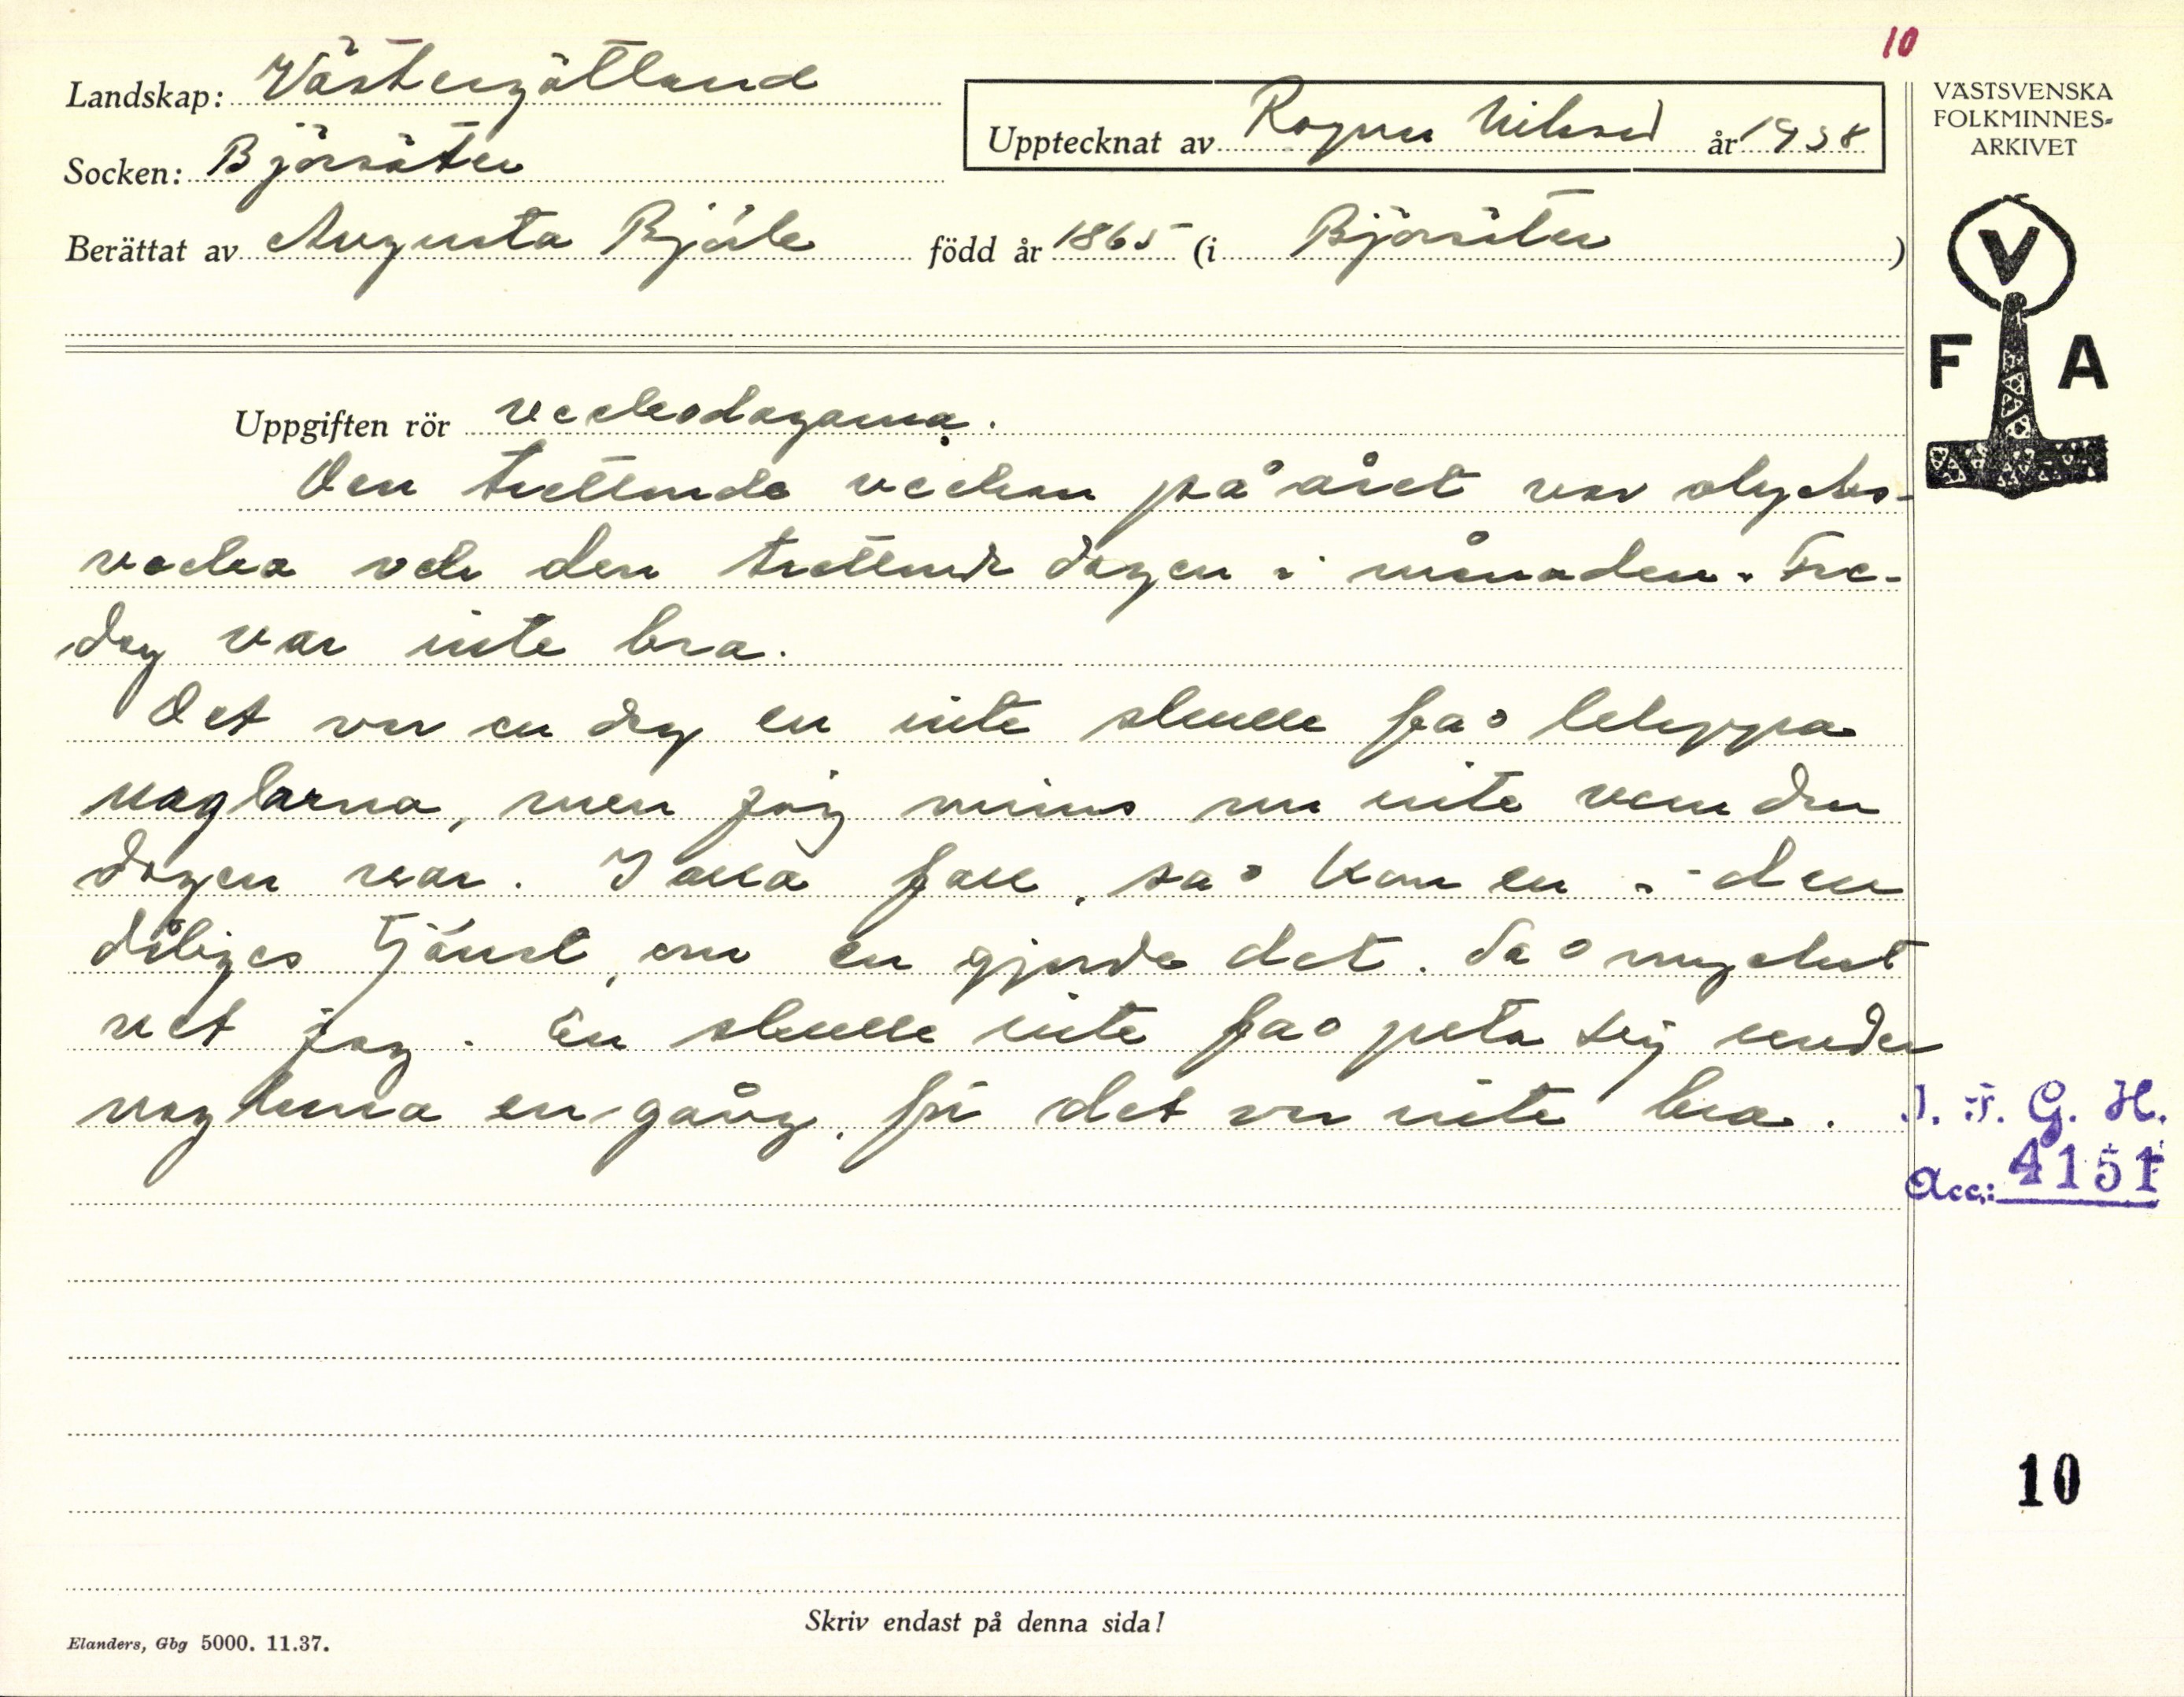 10
Landskap: Västergötland
Upptecknat av Ragnar Nilsson år 1938
VÄSTSVENSKA
FOLKMINNES-
ARKIVET
Socken: Björsäter
Berättat av Augusta Bjärle född år 1865 (i Björsäter)
V
F A
Uppgiften rör veckodagarna.
Den trettende veckan på året var olycks-
vecka och den trettende dagen i månaden. Fre-
dag var inte bra.
Det var en dag en inte skulle få klippa
naglarna, men jag minns nu inte vem den
dagen var. I alla fall, så kom en i den
dåliges tjänst, om en gjorde det. Så mycket
vet jag. En skulle inte få peta sig under
naglarna en gång, för det var inte bra.
I. F. G. H.
Acc.: 4151
10
Skriv endast på denna sida!
Elanders, Gbg 5000. 11.37.